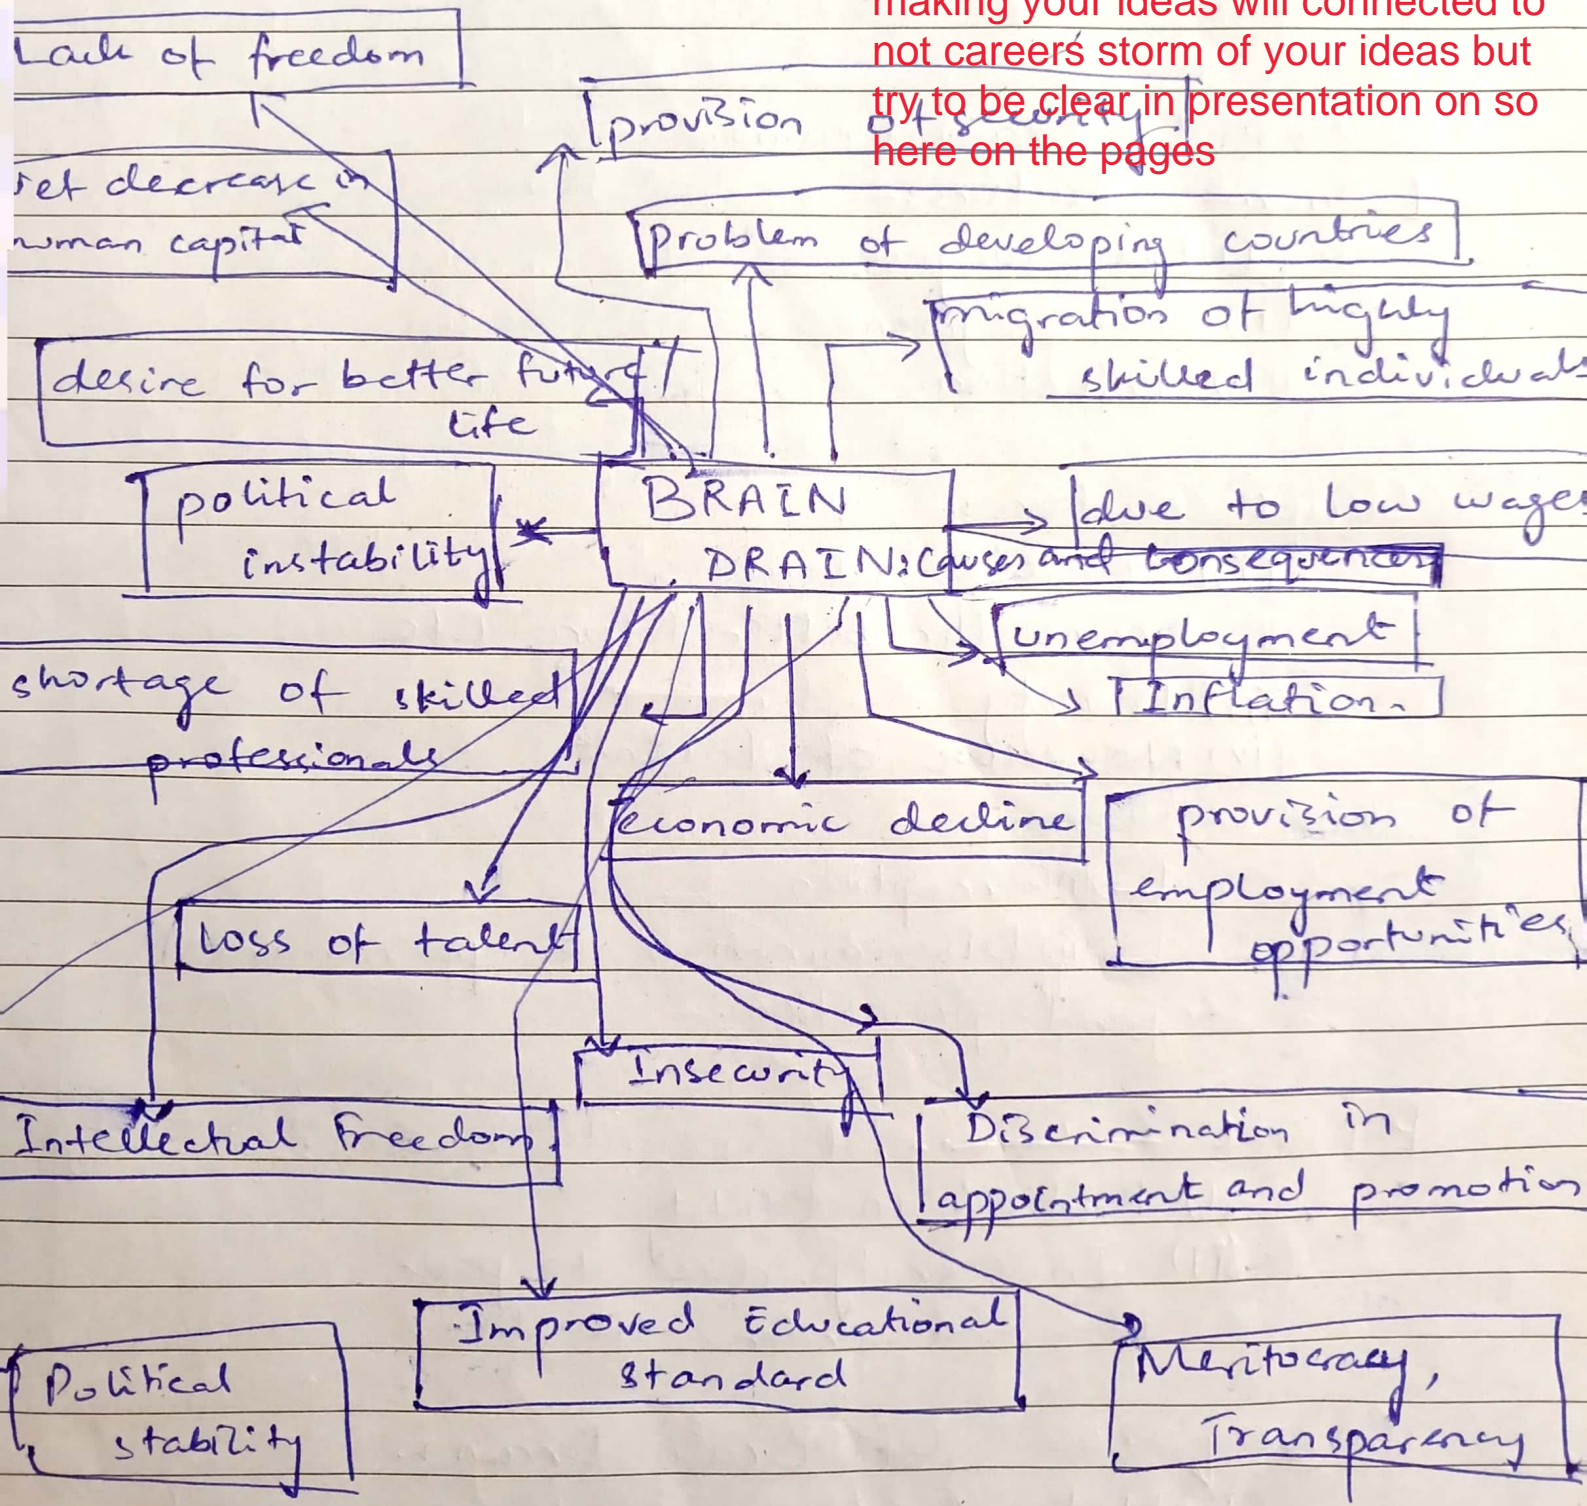 making your ideas will connected to
not careers storm of your ideas but
try to be clear in presentation on so
here on the pages
Lack of freedom
provision of security.
et decrease in
human capital
problem of developing countries
migration of highly
skilled individuals
desire for better future/
life
political
instability
BRAIN
DRAIN: Causes and Consequences
due to low wages
unemployment
Inflation.
shortage of skilled
professionals
economic decline
provision of
employment
opportunities
Loss of talent
Insecurity
Intellectual Freedom
Discrimination in
appointment and promotion
Improved Educational
Standard
Political
stability
Meritocracy,
Transparency